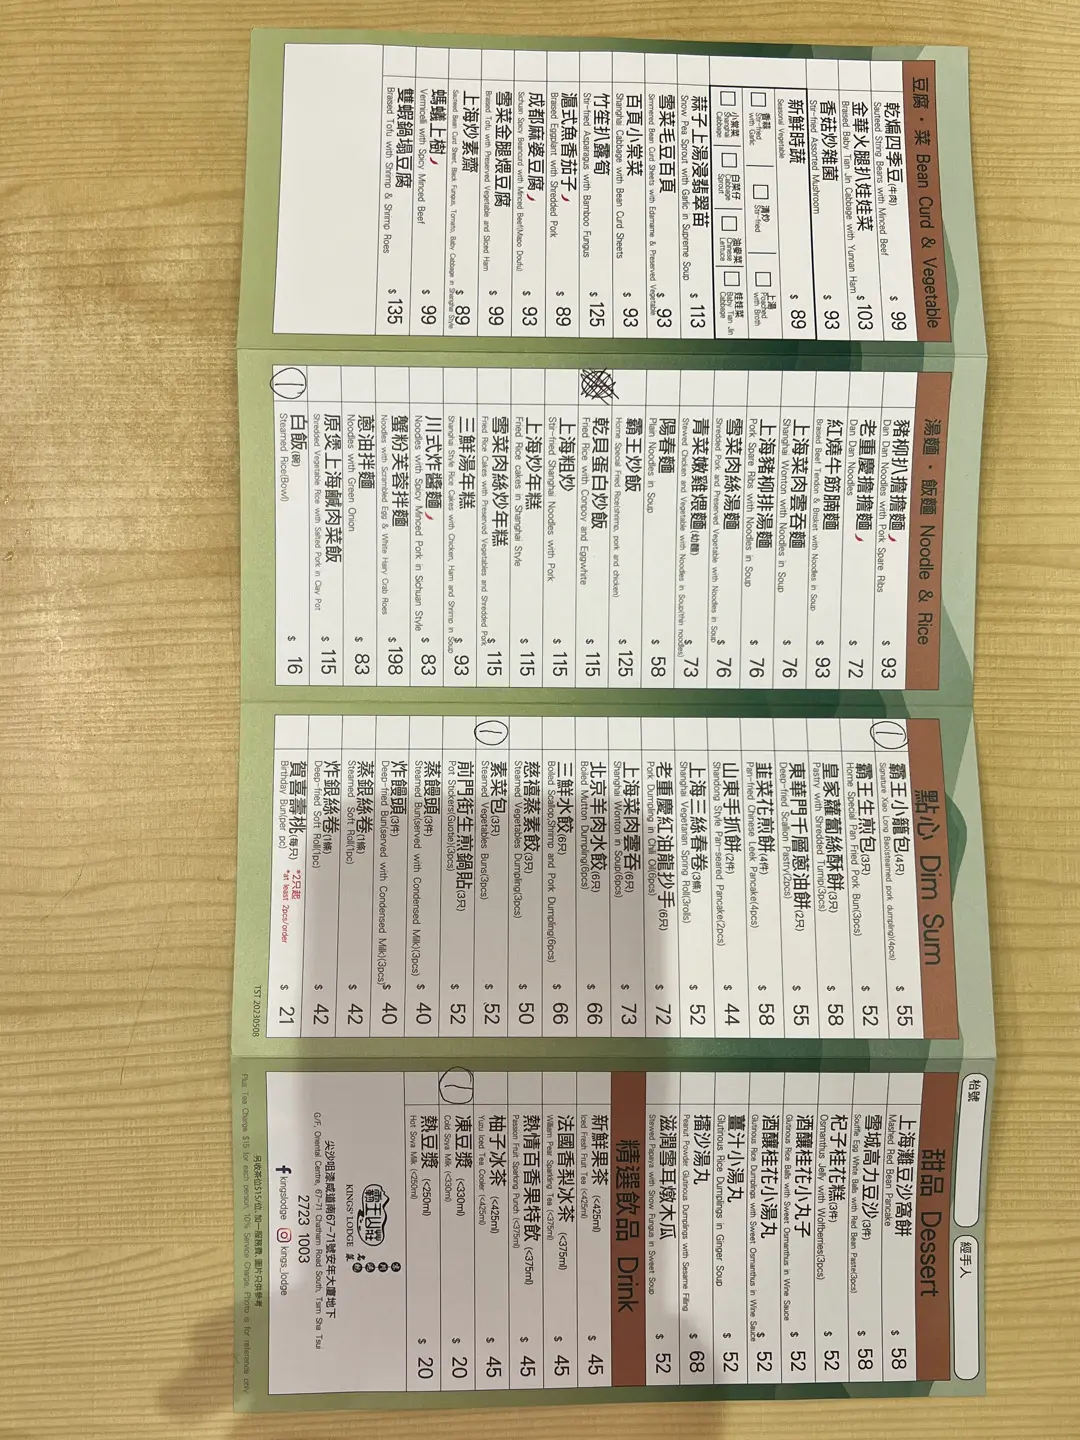 豆腐・菜 Bean Curd & Vegetable
乾煸四季豆(牛肉)
Sauteed String Beans with Minced Beef
$ 99
金菜火腿扒娃娃菜
Braised Baby Tian Jin Cabbage with Yunnan Ham
$ 103
香茜炒雜菌
Stir-fried Assorted Mushroom
$ 93
新鮮時蔬
Seasonal Vegetable
$ 89
蒜蓉
Stir-fried with Garlic
清炒
Stir-fried
上湯
Poached with Broth
小棠菜
Shanghai Cabbage
白菜仔
Cabbage Sprout
油麥菜
Chinese Lettuce
娃娃菜
Baby Tian Jin Cabbage
蒜子上湯浸翡翠苗
Snow Pea Sprout with Garlic in Supreme Soup
$ 113
雪菜毛豆百頁
Simmered Bean Curd Sheets with Edamame & Preserved Vegetable
$ 93
百頁小棠菜
Shanghai Cabbage with Bean Curd Sheets
$ 93
竹笙扒露筍
Stir-fried Asparagus with Bamboo Fungus
$ 125
滬式魚香茄子
Braised Eggplant with Shredded Pork
$ 89
成都麻婆豆腐
Sichuan Spicy Beancurd with Minced Beef(Mapo Doufu)
$ 93
雪菜金腿煨豆腐
Braised Tofu with Preserved Vegetable and Sliced Ham
$ 99
上海炒素齋
Sauteed Bean Curd Sheet, Black Fungus, Tomato, Baby Cabbage in Shanghai Style
$ 89
螞蟻上樹
Vermicelli with Spicy Minced Beef
$ 99
雙蝦鍋塌豆腐
Braised Tofu with Shrimp & Shrimp Roes
$ 135
湯麵・飯麵 Noodle & Rice
豬柳扒擔擔麵
Dan Dan Noodles with Pork Spare Ribs
$ 93
老重慶擔擔麵
Dan Dan Noodles
$ 72
紅燒牛筋腩麵
Braised Beef Tendon & Brisket with Noodles in Soup
$ 93
上海菜肉雲吞麵
Shanghai Wonton with Noodles in Soup
$ 76
上海豬柳排湯麵
Pork Spare Ribs with Noodles in Soup
$ 76
雪菜肉絲湯麵
Shredded Pork and Preserved Vegetable with Noodles in Soup
$ 76
青菜嫩雞煨麵(幼麵)
Stewed Chicken and Vegetable with Noodles in Soup(thin noodles)
$ 73
陽春麵
Plain Noodles in Soup
$ 58
霸王炒飯
Home Special Fried Rice(shrimp, pork and chicken)
$ 125
乾貝蛋白炒飯
Fried Rice with Conpoy and Eggwhite
$ 115
上海粗炒
Stir-fried Shanghai Noodles with Pork
$ 115
上海炒年糕
Fried Rice cakes in Shanghai Style
$ 115
雪菜肉絲炒年糕
Fried Rice Cakes with Preserved Vegetables and Shredded Pork
$ 115
三鮮湯年糕
Shanghai Style Rice Cakes with Chicken, Ham and Shrimp in Soup
$ 93
川式炸醬麵
Noodles with Spicy Minced Pork in Sichuan Style
$ 83
蟹粉芙蓉拌麵
Noodles with Scrambled Egg & White Hairy Crab Roes
$ 198
蔥油拌麵
Noodles with Green Onion
$ 83
原煲上海鹹肉菜飯
Shredded Vegetable Rice with Salted Pork in Clay Pot
$ 115
1
白飯(碗)
Steamed Rice(Bowl)
$ 16
點心 Dim Sum
1
霸王小籠包(4只)
Signature Xiao Long Bao(steamed pork dumpling)(4pcs)
$ 55
霸王生煎包(3只)
Home Special Pan Fried Pork Bun(3pcs)
$ 52
皇家蘿蔔絲酥餅(3只)
Pastry with Shredded Turnip(3pcs)
$ 58
東華門千層蔥油餅(2只)
Deep-fried Scallion Pastry(2pcs)
$ 55
韮菜花煎餅(4件)
Pan-fried Chinese Leek Pancake(4pcs)
$ 58
山東手抓餅(2件)
Shandong Style Pan-seared Pancake(2pcs)
$ 44
上海三絲春卷(3條)
Shanghai Vegetarian Spring Roll(3rolls)
$ 52
老重慶紅油龍抄手(6只)
Pork Dumpling in Chili Oil(6pcs)
$ 72
上海菜肉雲吞(6只)
Shanghai Wonton in Soup(6pcs)
$ 73
北京羊肉水餃(6只)
Boiled Mutton Dumpling(6pcs)
$ 66
三鮮水餃(6只)
Boiled Scallop,Shrimp and Pork Dumpling(6pcs)
$ 66
慈禧蒸素餃(3只)
Steamed Vegetables Dumpling(3pcs)
$ 50
1
素菜包(3只)
Steamed Vegetables Buns(3pcs)
$ 52
前門街生煎鍋貼(3只)
Pot Stickers(Guotie)(3pcs)
$ 52
蒸饅頭(3件)
Steamed Bun(served with Condensed Milk)(3pcs)
$ 40
炸饅頭(3件)
Deep-fried Bun(served with Condensed Milk)(3pcs)
$ 40
蒸銀絲卷(1條)
Steamed Soft Roll(1pc)
$ 42
炸銀絲卷(1條)
Deep-fried Soft Roll(1pc)
$ 42
賀喜壽桃(每只) *2只起
Birthday Bun(per pc) *at least 2pcs/order
$ 21
TST 20230508
枱號
經手人
甜品 Dessert
上海灘豆沙窩餅
Mashed Red Bean Pancake
$ 58
雪域高力豆沙(3件)
Souffle Egg White Balls with Red Bean Paste(3pcs)
$ 58
杞子桂花糕(3件)
Osmanthus Jelly with Wolfberries(3pcs)
$ 52
酒釀桂花小丸子
Glutinous Rice Balls with Sweet Osmanthus in Wine Sauce
$ 52
酒釀桂花小湯丸
Glutinous Rice Dumplings with Sweet Osmanthus in Wine Sauce
$ 52
薑汁小湯丸
Glutinous Rice Dumplings in Ginger Soup
$ 52
擂沙湯丸
Peanut Powder Glutinous Dumplings with Sesame Filling
$ 68
滋潤雪耳燉木瓜
Stewed Papaya with Snow Fungus in Sweet Soup
$ 52
精選飲品 Drink
新鮮果茶 (<425ml)
Iced Fresh Fruit Tea (<425ml)
$ 45
法國香梨冰茶 (<375ml)
William Pear Sparkling Tea (<375ml)
$ 45
熱情百香果特飲 (<375ml)
Passion Fruit Sparkling Punch (<375ml)
$ 45
柚子冰茶 (<425ml)
Yuzu Iced Tea Cooler (<425ml)
$ 45
1
凍豆漿 (<330ml)
Cold Soya Milk (<330ml)
$ 20
熱豆漿 (<250ml)
Hot Soya Milk (<250ml)
$ 20
霸王山莊
KINGS' LODGE
尖沙咀漆咸道南67-71號安年大廈地下
G/F, Oriental Centre, 67-71 Chatham Road South, Tsim Sha Tsui
2723 1003
kingslodge kings_lodge
另收茶位$15/位, 加一服務費, 圖片只供參考
Plus Tea Charge $15 for each person, 10% Service Charge, Photo is for reference only